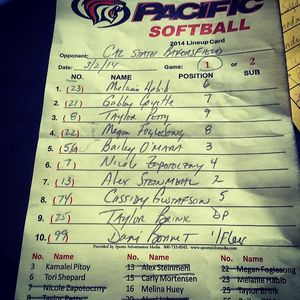 PACIFIC
SOFTBALL
2014 Lineup Card
Opponent: CAL STATE BAKERSFIELD
Date: 3/2/14 Game: 1 or 2
NO. NAME POSITION SUB
1. (23) Melanie Habib 6
2. (21) Gabby Goyette 7
3. (8) Taylor Petty 9
4. (22) Megan Foglesong 8
5. (56) Bailey O'Mara 3
6. (7) Nicole Zapotoczny 4
7. (13) Alex Steinmehl 2
8. (74) Cassidy Gustafson 5
9. (25) Taylor Brink DP
10. (99) Dani Bonnet 1/Flex
Provided by Sports Information Media. 800-732-9543. www.sportsinfomedia.com
No. Name No. Name No. Name
3 Kamalei Pitoy 13 Alex Steinmehl 22 Megan Foglesong
6 Tori Shepard 15 Carly Mortensen 23 Melanie Habib
7 Nicole Zapotoczny 16 Melina Huey 25 Taylor Brink
8 Taylor Petty